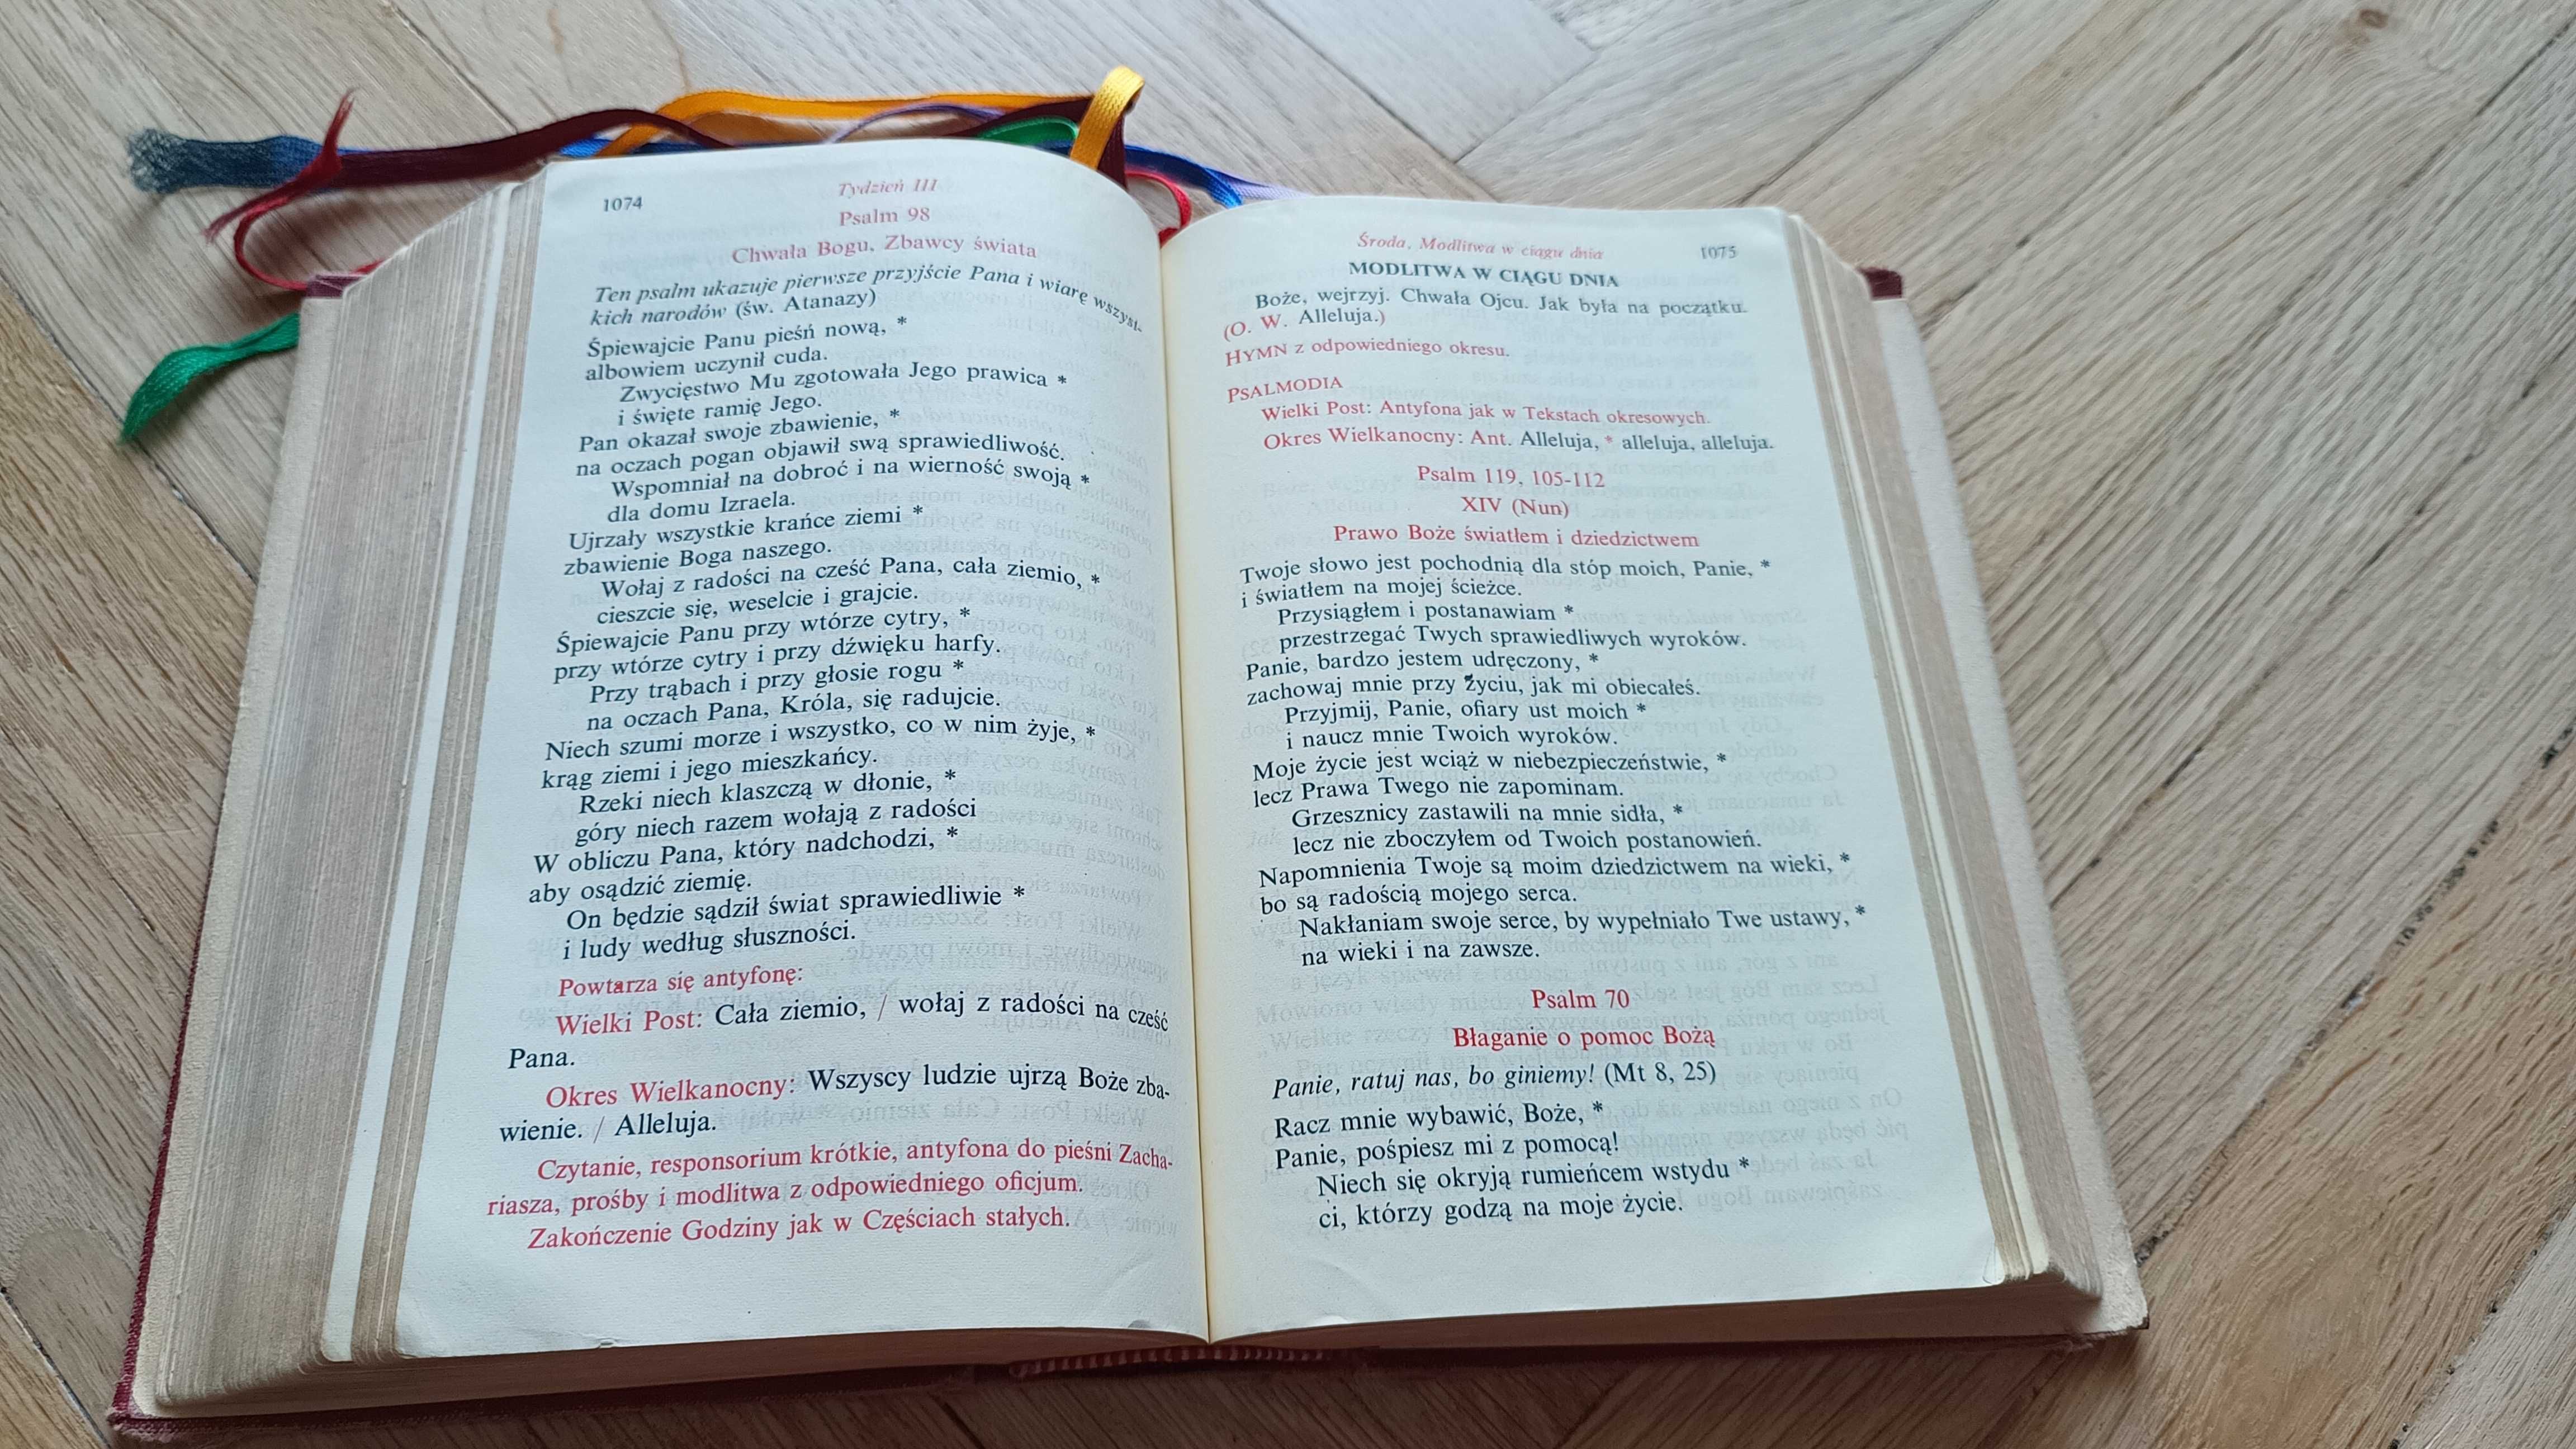 1074
Tydzień III
Psalm 98
Chwała Bogu, Zbawcy świata
Ten psalm ukazuje pierwsze przyjście Pana i wiarę wszyst-
kich narodów (św. Atanazy)
Śpiewajcie Panu pieśń nową, *
albowiem uczynił cuda.
Zwycięstwo Mu zgotowała Jego prawica *
i święte ramię Jego.
Pan okazał swoje zbawienie, *
na oczach pogan objawił swą sprawiedliwość.
Wspomniał na dobroć i na wierność swoją *
dla domu Izraela.
Ujrzały wszystkie krańce ziemi *
zbawienie Boga naszego.
Wołaj z radości na cześć Pana, cała ziemio, *
cieszcie się, weselcie i grajcie.
Śpiewajcie Panu przy wtórze cytry, *
przy wtórze cytry i przy dźwięku harfy.
Przy trąbach i przy głosie rogu *
na oczach Pana, Króla, się radujcie.
Niech szumi morze i wszystko, co w nim żyje, *
krąg ziemi i jego mieszkańcy.
Rzeki niech klaszczą w dłonie, *
góry niech razem wołają z radości
W obliczu Pana, który nadchodzi, *
aby osądzić ziemię.
On będzie sądził świat sprawiedliwie *
i ludy według słuszności.
Powtarza się antyfonę:
Wielki Post: Cała ziemio, / wołaj z radości na cześć
Pana.
Okres Wielkanocny: Wszyscy ludzie ujrzą Boże zba-
wienie. / Alleluja.
Czytanie, responsorium krótkie, antyfona do pieśni Zacha-
riasza, prośby i modlitwa z odpowiedniego oficjum.
Zakończenie Godziny jak w Częściach stałych.
Środa, Modlitwa w ciągu dnia
1075
MODLITWA W CIĄGU DNIA
Boże, wejrzyj. Chwała Ojcu. Jak była na początku.
(O. W. Alleluja.)
HYMN z odpowiedniego okresu.
PSALMODIA
Wielki Post: Antyfona jak w Tekstach okresowych.
Okres Wielkanocny: Ant. Alleluja, * alleluja, alleluja.
Psalm 119, 105-112
XIV (Nun)
Prawo Boże światłem i dziedzictwem
Twoje słowo jest pochodnią dla stóp moich, Panie, *
i światłem na mojej ścieżce.
Przysiągłem i postanawiam *
przestrzegać Twych sprawiedliwych wyroków.
Panie, bardzo jestem udręczony, *
zachowaj mnie przy życiu, jak mi obiecałeś.
Przyjmij, Panie, ofiary ust moich *
i naucz mnie Twoich wyroków.
Moje życie jest wciąż w niebezpieczeństwie, *
lecz Prawa Twego nie zapominam.
Grzesznicy zastawili na mnie sidła, *
lecz nie zboczyłem od Twoich postanowień.
Napomnienia Twoje są moim dziedzictwem na wieki, *
bo są radością mojego serca.
Nakłaniam swoje serce, by wypełniało Twe ustawy, *
na wieki i na zawsze.
Psalm 70
Błaganie o pomoc Bożą
Panie, ratuj nas, bo giniemy! (Mt 8, 25)
Racz mnie wybawić, Boże, *
Panie, pośpiesz mi z pomocą!
Niech się okryją rumieńcem wstydu *
ci, którzy godzą na moje życie.